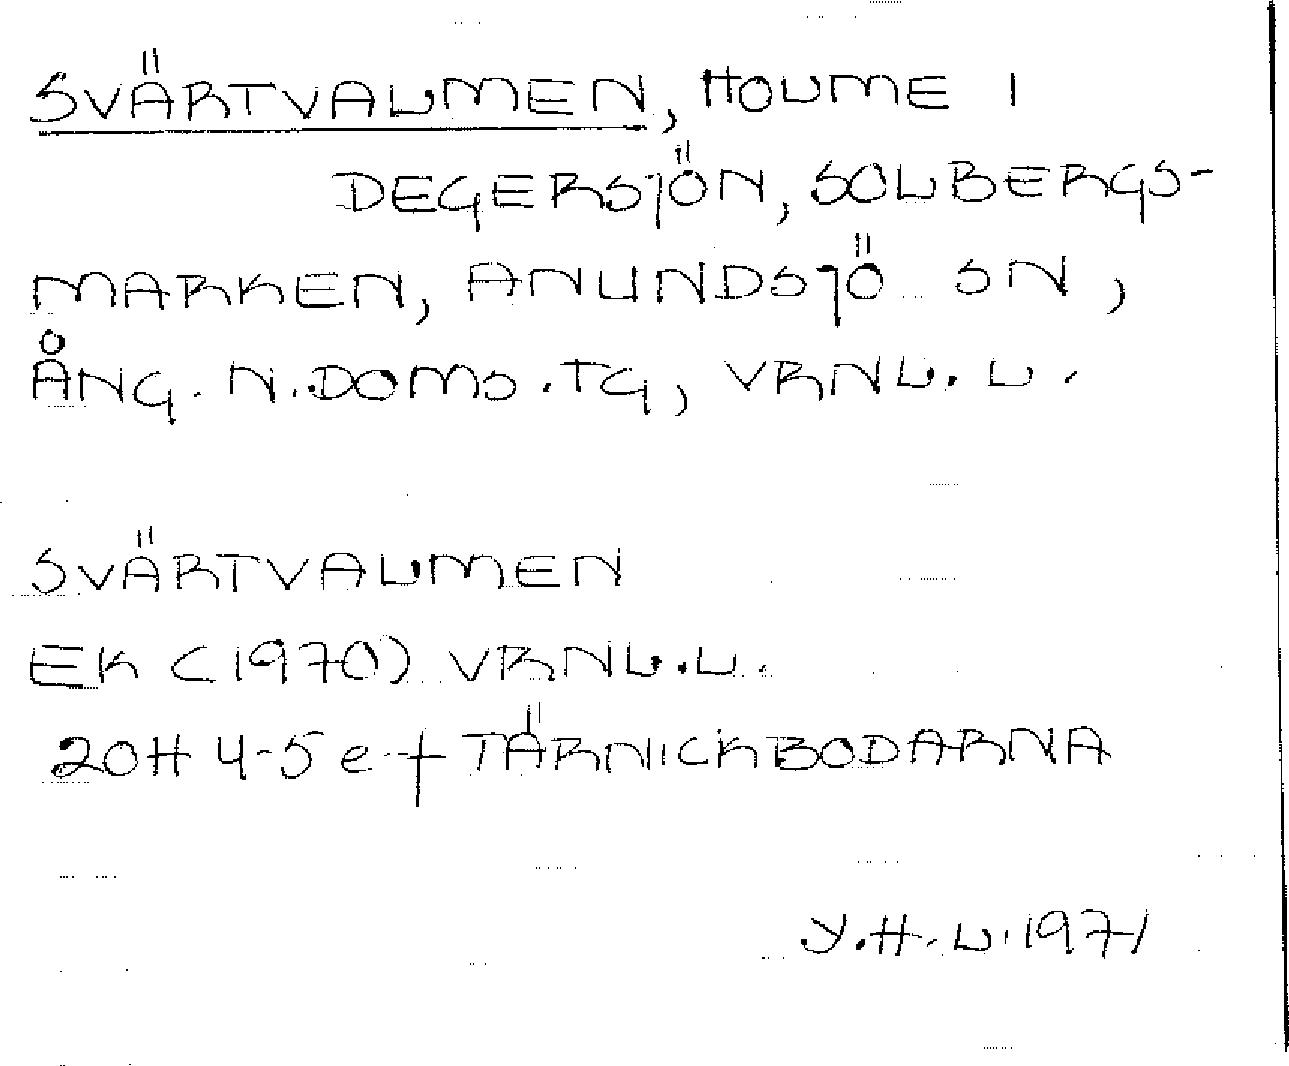 SVÄRTVALMEN, HOLME I
DEGERSJÖN, SOLBERGS-
MARKEN, ANUNDSJÖ SN,
ÅNG. N. DOMS. TG, VRNL. L.
SVÄRTVALMEN
EK (1970) VRNL. L.
20H 4-5 e-f TÄRNICKBODARNA
Y.H.L. 1971